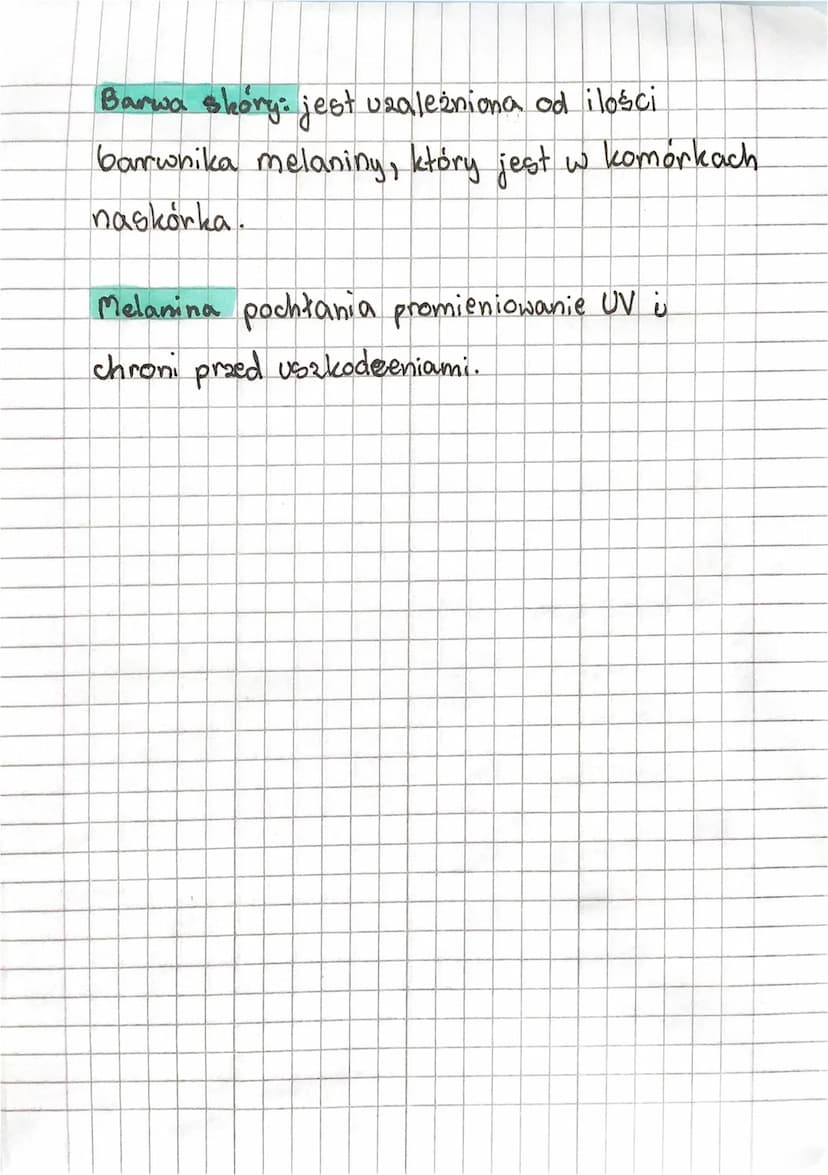 Barwa skóry: jest uzależniona od ilości
barwnika melaniny, który jest w komórkach
naskórka.
Melanina pochłania promieniowanie UV i
chroni przed uszkodzeniami.